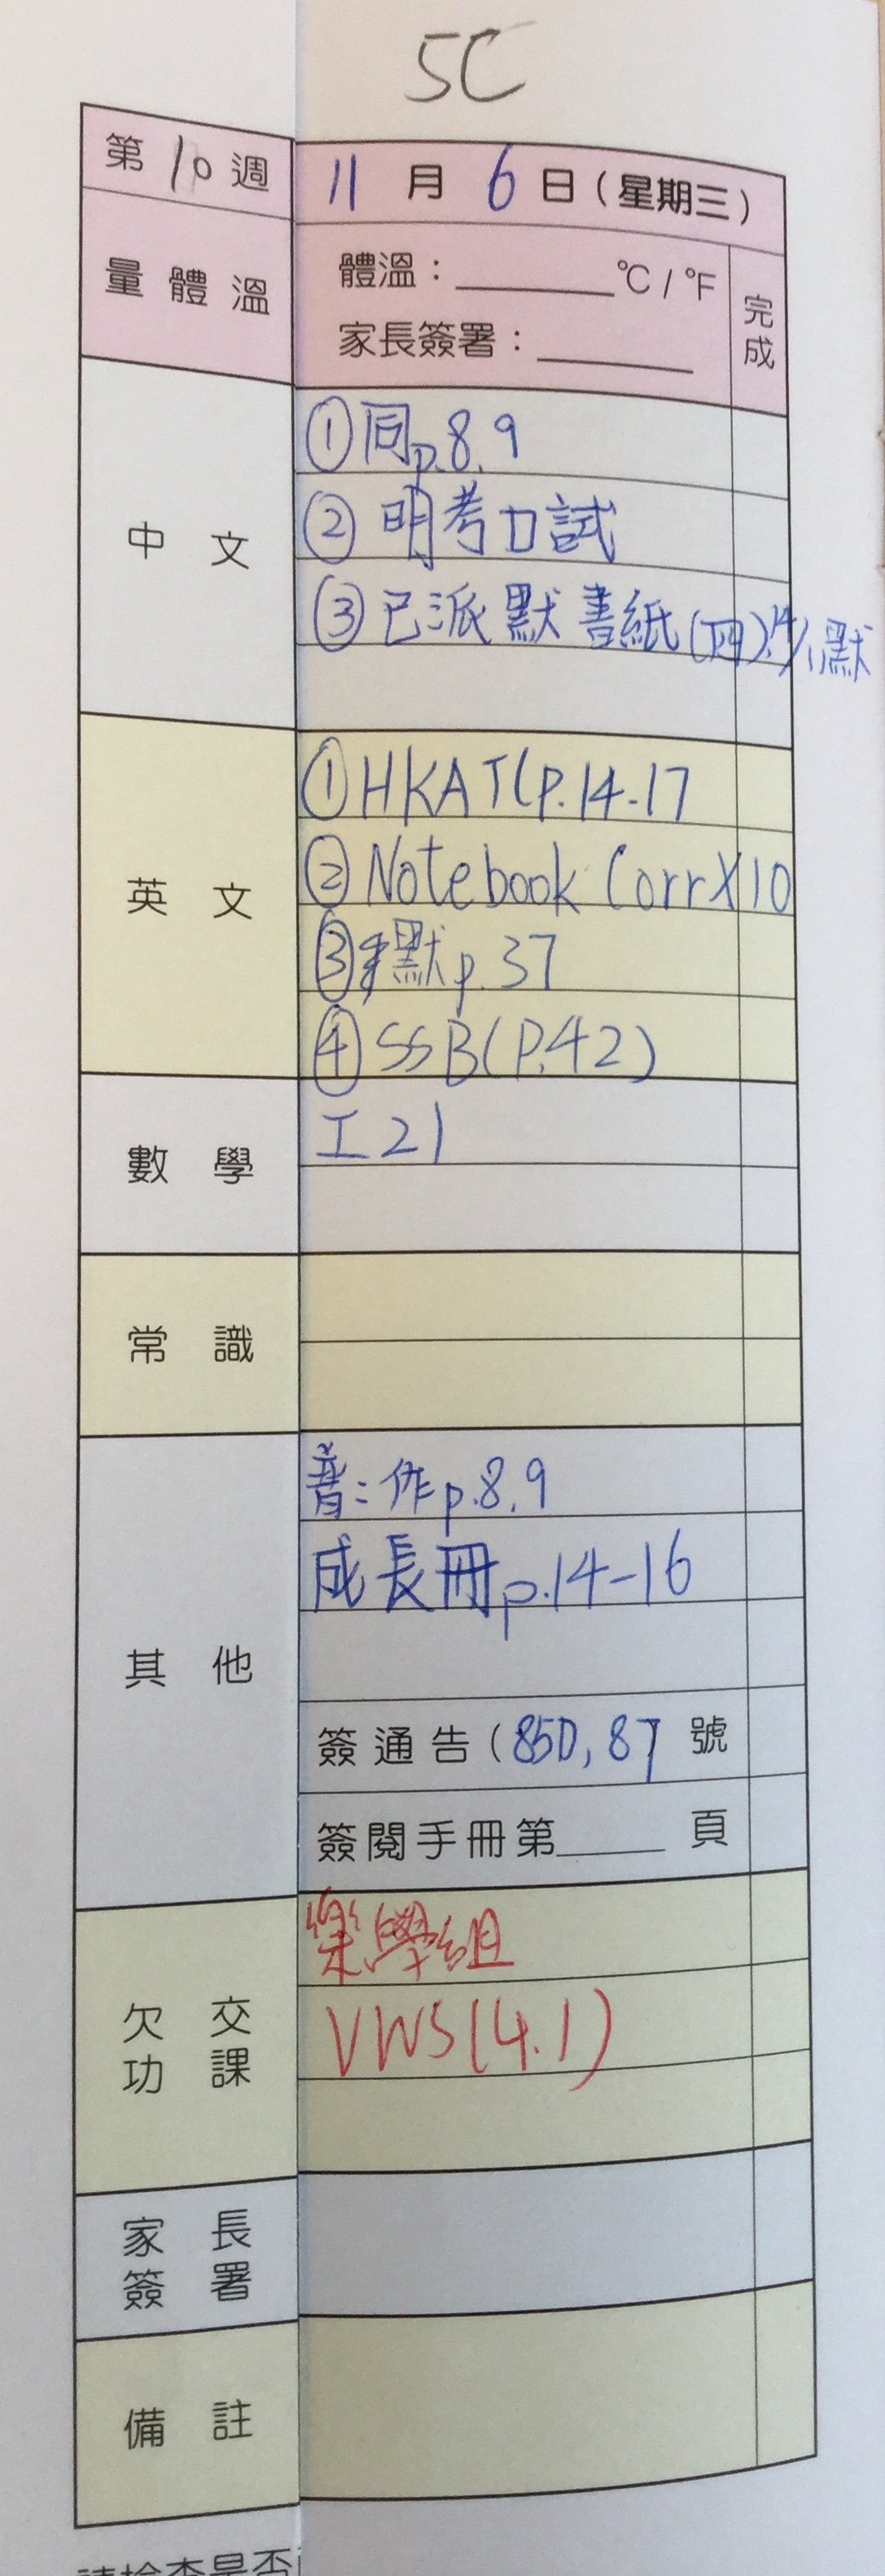 5C
第 10 週
11 月 6 日 (星期三)
量體溫
體溫：______°C / °F
家長簽署：______
完成
中文
① 同p.8.9
② 明考口試
③ 已派默書紙(四),14/11默
英文
① HKAT(P.14-17
② Notebook CorrX10
③ 默p.37
④ SSB(P.42)
數學
工21
常識
其他
普：作p.8.9
成長冊p.14-16
簽通告(85D,87 號
簽閱手冊第____ 頁
欠交功課
樂學組
VWS(4.1)
家長簽署
備註
請檢查是否